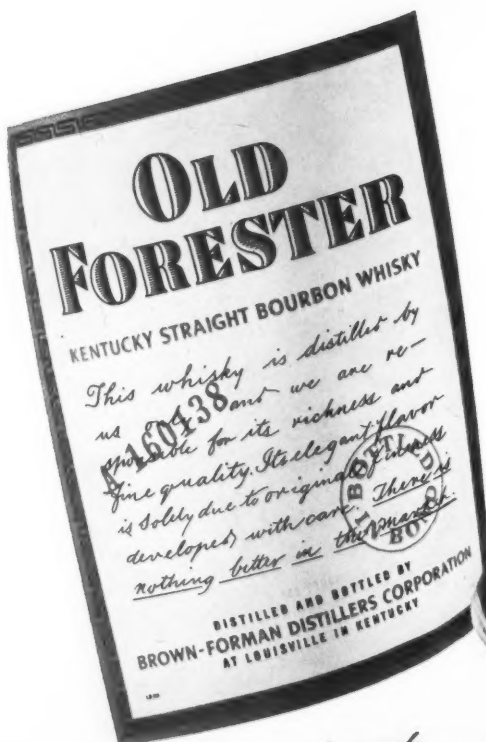 OLD
FORESTER
KENTUCKY STRAIGHT BOURBON WHISKY
This whisky is distilled by
us and we are re-
sponsible for its richness and
fine quality. Its elegant flavor
is solely due to original fineness
developed with care. There is
nothing better in the market.
A 160138
BOTTLED
IN
BOND
DISTILLED AND BOTTLED BY
BROWN-FORMAN DISTILLERS CORPORATION
AT LOUISVILLE IN KENTUCKY